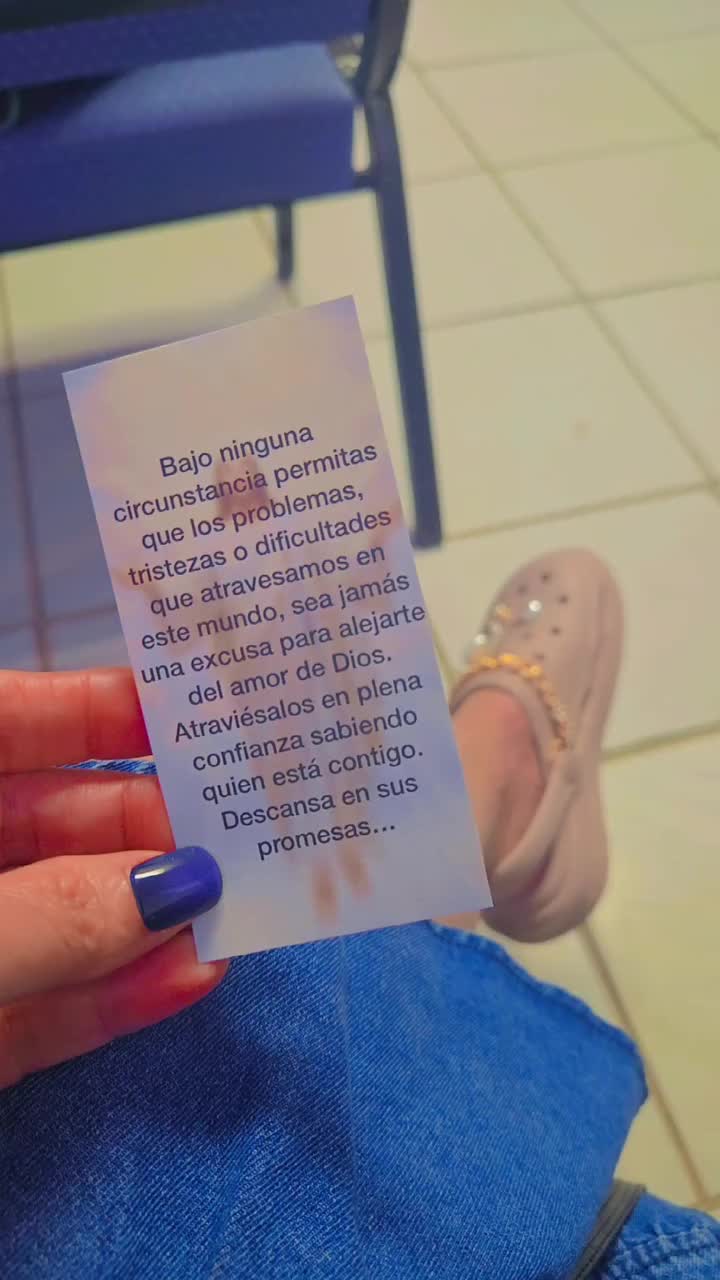 Bajo ninguna
circunstancia permitas
que los problemas,
tristezas o dificultades
que atravesamos en
este mundo, sea jamás
una excusa para alejarte
del amor de Dios.
Atraviésalos en plena
confianza sabiendo
quien está contigo.
Descansa en sus
promesas...